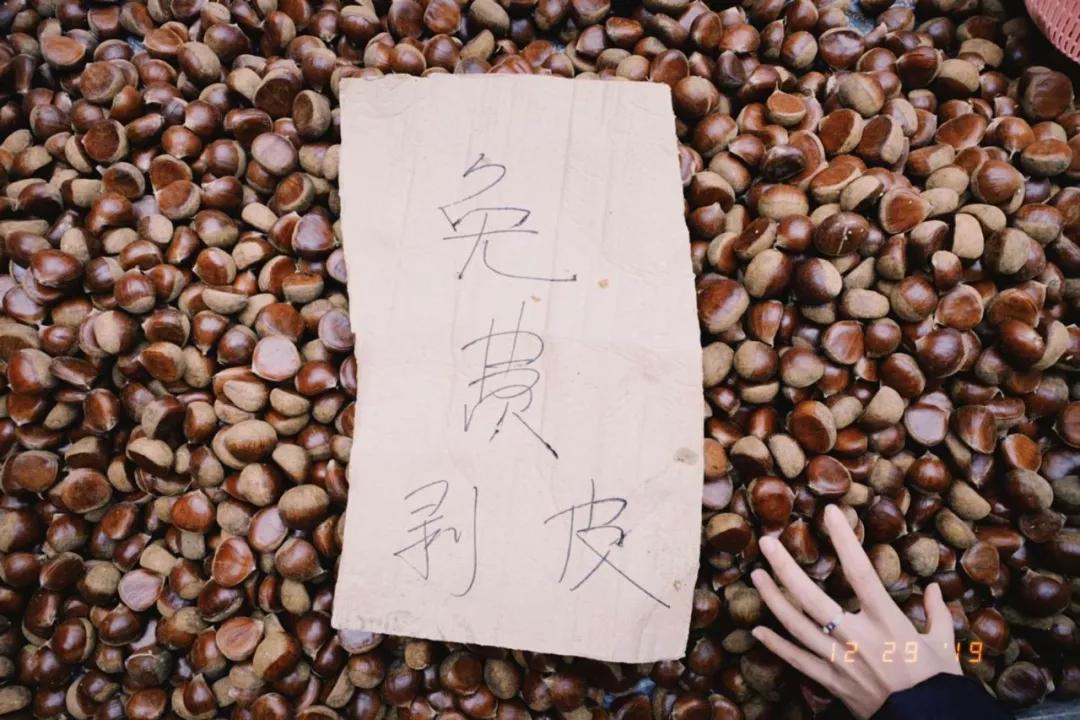 免
费
剥皮
12 29 '19